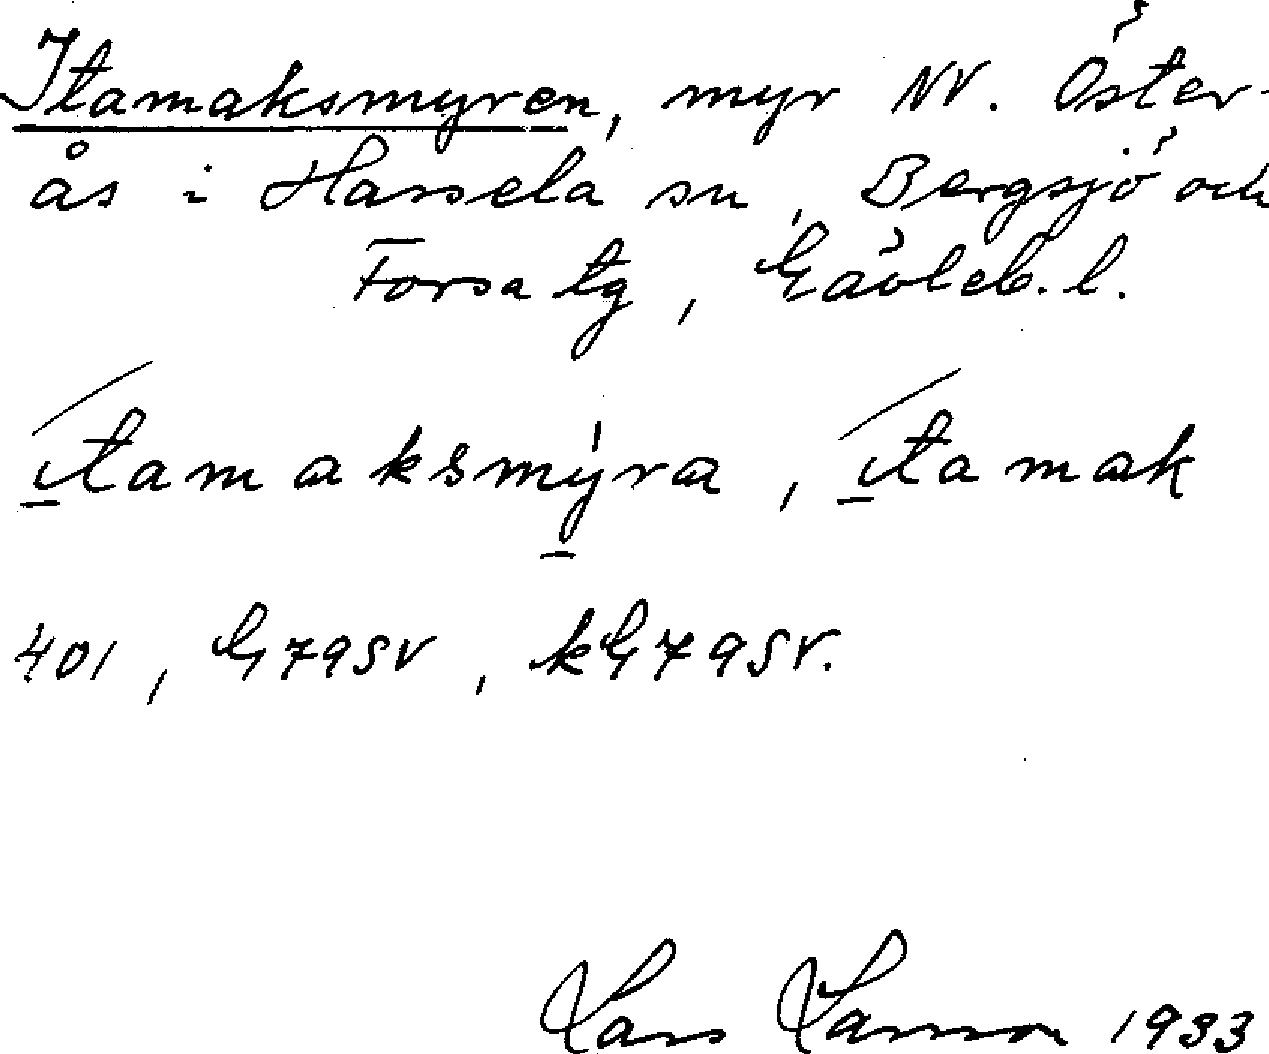 Itamaksmyren, myr NV. Öster-
ås i Hassela sn, Bergsjö och
Forsa tg, Gävleb. l.
ıtamaksmyra, ıtamak
401, G79SV, kG79SV.
Lars Larsson 1933